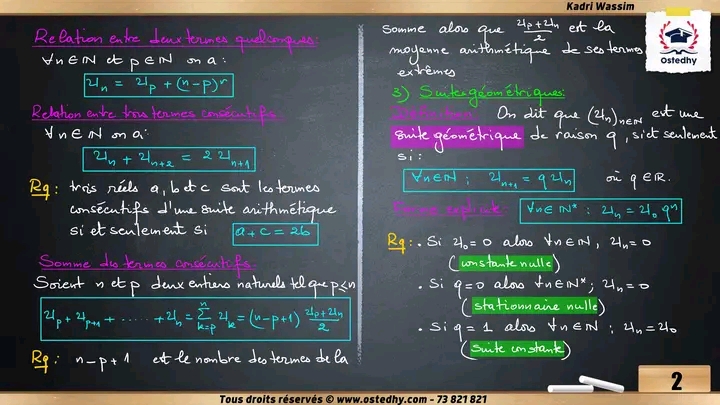 Kadri Wassim
Relation entre deux termes quelconques:
∀n∈ℕ et p∈ℕ on a:
Uₙ = Uₚ + (n-p)r
Relation entre trois termes consécutifs
∀n∈ℕ on a:
Uₙ + Uₙ₊₂ = 2Uₙ₊₁
Rq: trois réels a, b et c sont les termes
consécutifs d'une suite arithmétique
si et seulement si a + c = 2b
Somme des termes consécutifs
Soient n et p deux entiers naturels tel que p≤n
Uₚ + Uₚ₊₁ + ...... + Uₙ = Σₖ₌ₚⁿ Uₖ = (n-p+1) (Uₚ+Uₙ)/2
Rq: n-p+1 est le nombre des termes de la
somme alors que (Uₚ+Uₙ)/2 est la
moyenne arithmétique de ses termes
extrêmes
3) Suites géométriques:
Définition: On dit que (Uₙ)ₙ∈ℕ est une
suite géométrique de raison q, si et seulement
si:
∀n∈ℕ; Uₙ₊₁ = qUₙ où q∈ℝ.
Forme explicite: ∀n∈ℕ*: Uₙ = U₀qⁿ
Rq: • Si U₀=0 alors ∀n∈ℕ, Uₙ=0
(constante nulle)
• Si q=0 alors ∀n∈ℕ*; Uₙ=0
(stationnaire nulle)
• Si q=1 alors ∀n∈ℕ; Uₙ=U₀
(suite constante)
Ostedhy
2
Tous droits réservés © www.ostedhy.com - 73 821 821